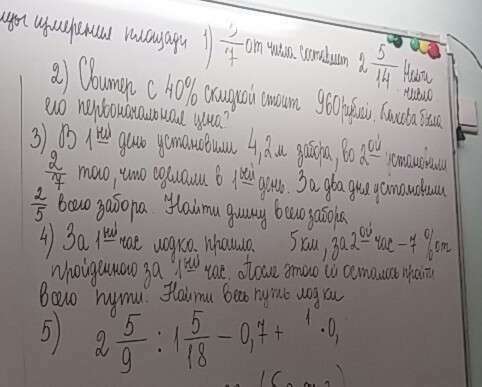 измерения площади 1) /7 от числа составляет 2 5/14 Найти
число
2) Свитер с 40% скидкой стоит 960 рублей. Какова была
его первоначальная цена?
3) В 1ый день установили 4,2 м забора, во 2ой установили
2/7 того, что сделали в 1ый день. За два дня установили
2/5 всего забора. Найти длину всего забора
4) За 1ый час лодка прошла 5 км, за 2ой час – 7% от
пройденного за 1ый час. После этого ей осталось пройти
всего пути. Найти весь путь лодки
5) 2 5/9 : 1 5/18 – 0,7 + 1 · 0,